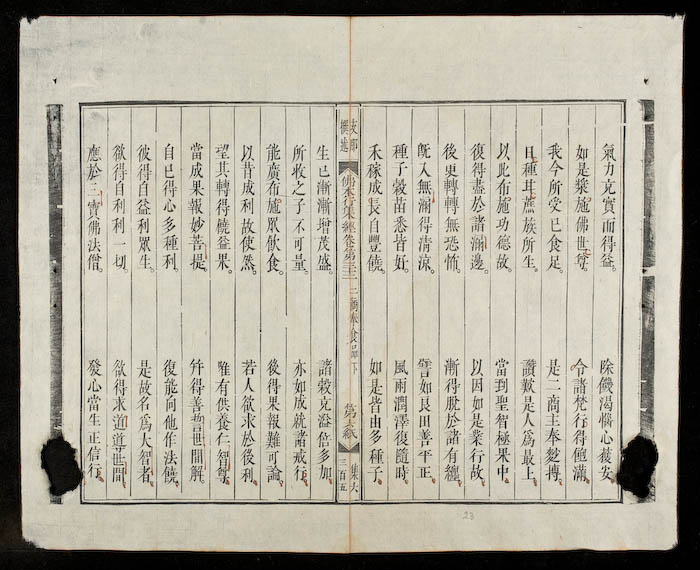 氣力克實而得益。除饑渴惱心獲安
如是漿施佛世尊。令諸梵行得飽滿
我今所受已食足。是二商主奉麨摶
日種甘蔗族所生。讚歎是人為最上
以此布施功德故。當到聖智極果中
復得盡於諸漏邊。以因如是業行故
後更轉轉無恐怖。漸得脫於諸有纏
既入無漏得清涼。譬如良田善平正
種子穀苗悉皆好。風雨潤澤復隨時
禾稼成長自豐饒。如是皆由多種子
支那
撰述
佛本行集經卷第三十二 二商奉食品下
集六
三百五
生已漸漸增茂盛。諸穀克溢倍多加
所收之子不可量。亦如成就諸戒行
能廣布施眾飲食。後得果報難可論
以昔成利故使然。若人欲求於後利
望其轉得饒益果。唯有供養仁智尊
當成果報妙菩提。并得善哲世間解
自已得心多種利。復能向他作法饒
彼得自益利眾生。是故名為大智者
欲得自利利一切。欲得求道導世間
應於三寶佛法僧。發心當生正信行
23